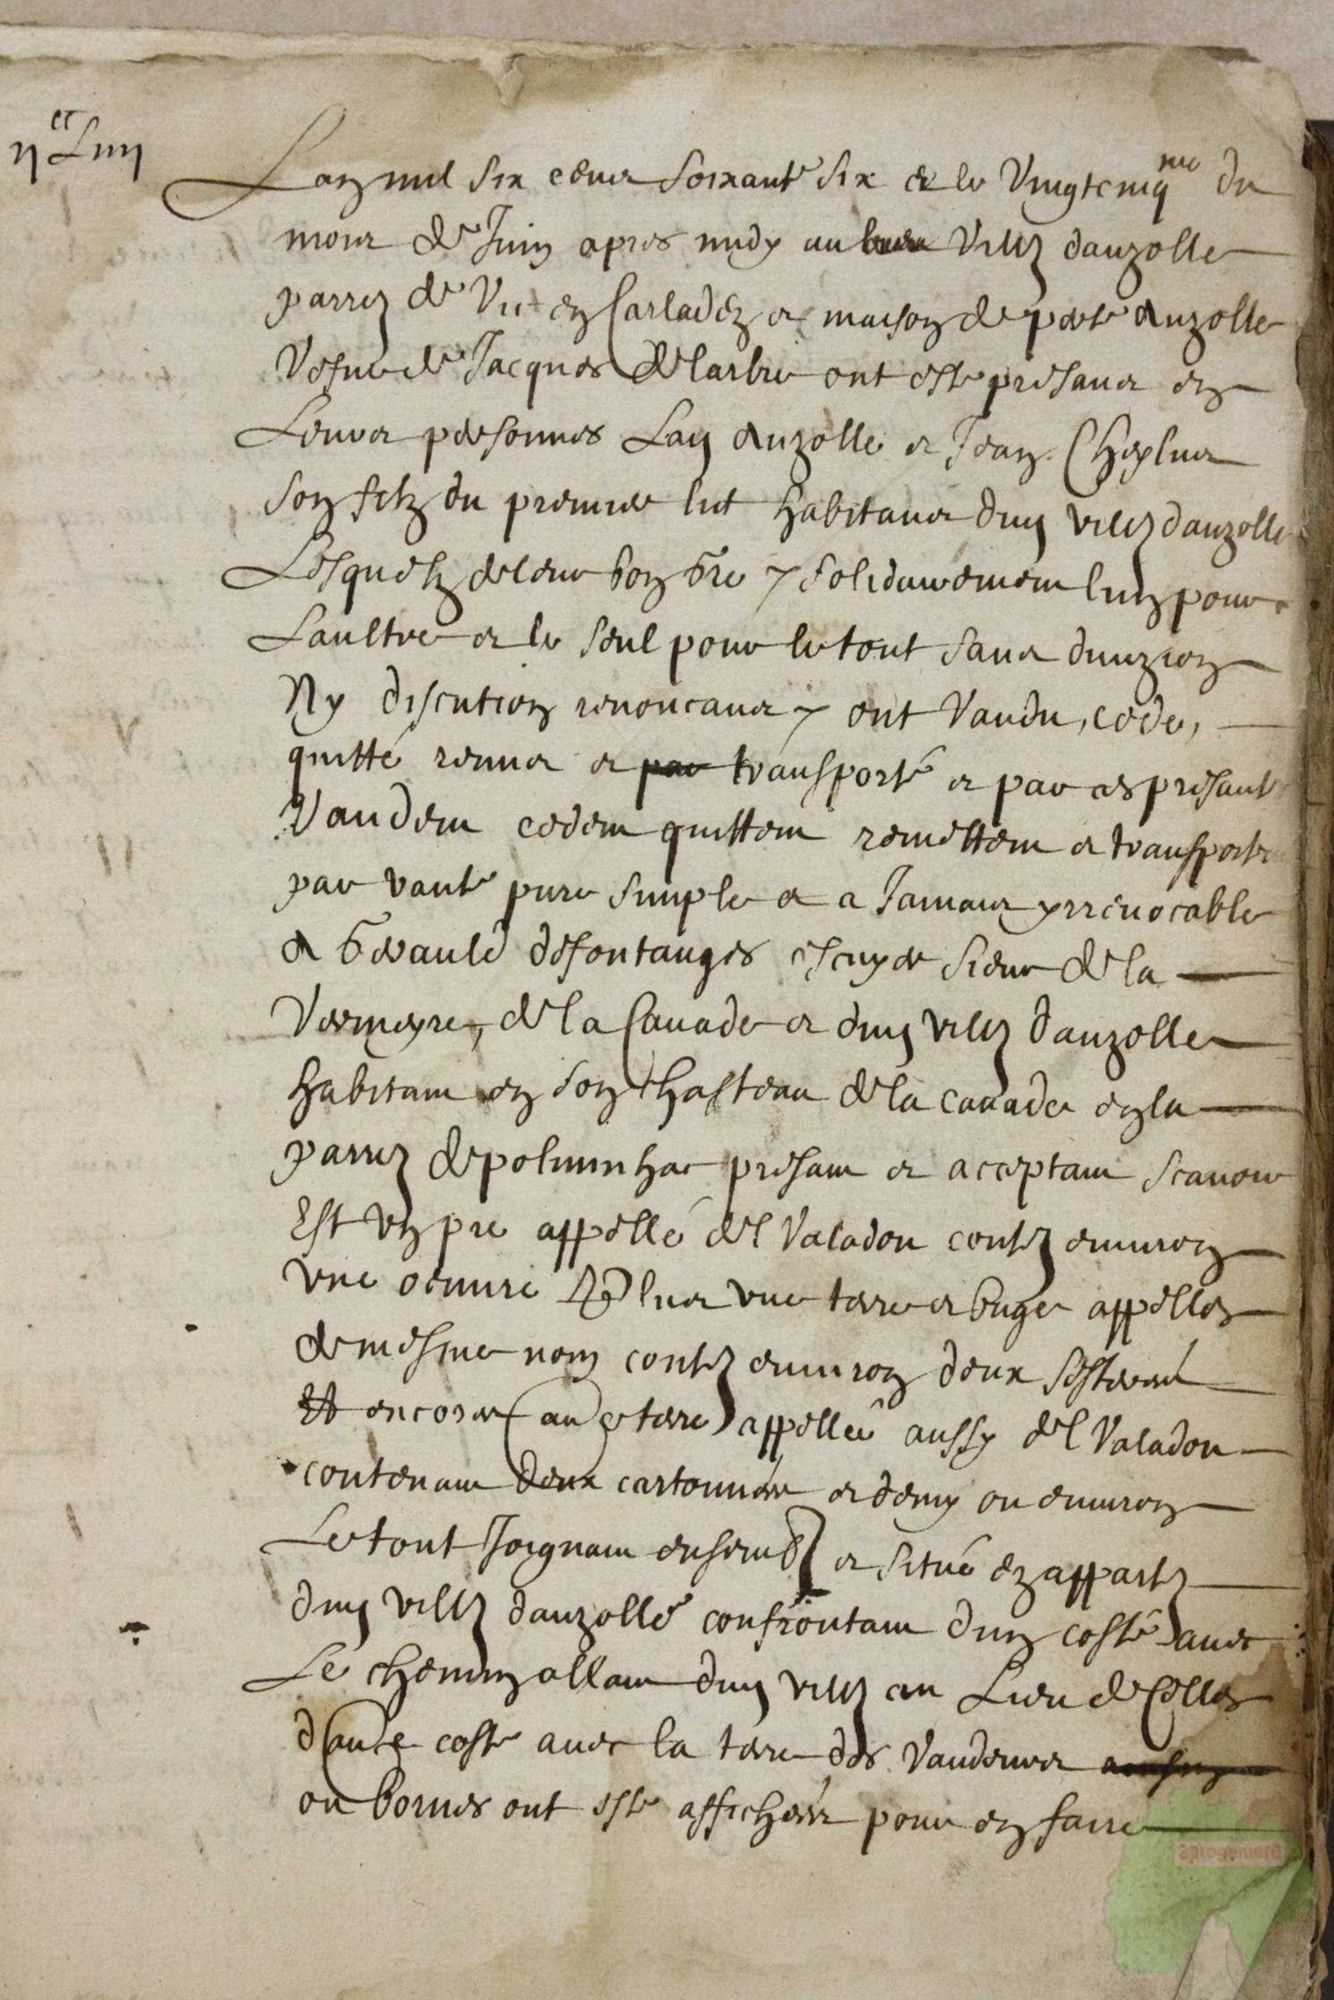 Lan mil six cens soixante six et le vingtcinq^me du
mois de Juin apres midy au villa^e danzolle
parr^e de Vic en Carladez et maison de anzolle
Vefve de Jacques Delarbre ont este presans en
Leurs personnes anzolle et Jean
son filz du premier lict habitans dud villa^e danzolle
Lesquels de leur bon gre & solidairement lun pour
Laultre et le seul pour le tout sans divizion
Ny discution renoncans & ont vandu, cede,
quitté remis et par transporté et par ces presantes
Vandent cedent quittent remettent et transportent
par vante pure simple et a Jamais yrrevocable
A Gerauld defontanges escuyer sieur de la
Vermeyre, de la Canade et dud villa^e danzolle
habitant en son chasteau de la canade en la
parr^e de polminhac presant et aceptant scavoir
Est un pre appellé del Valadou cont^e environ
une oeuvre Plus une terre et buge appelles
de mesme nom cont^e environ deux sesterées
Et encores au^e terre appellée aussy del Valadou
contenant deux cartonnées et demy ou environ
Le tout Joignant ensemb^e et situé en appart^e
dud villa^e danzolle confrontant dun costé avec
Le chemin allant dud villa^e au Lieu de Celles
dau^e costé avec la terre des vandeurs
ou bornes ont este affichées pour en faire
aprogemere